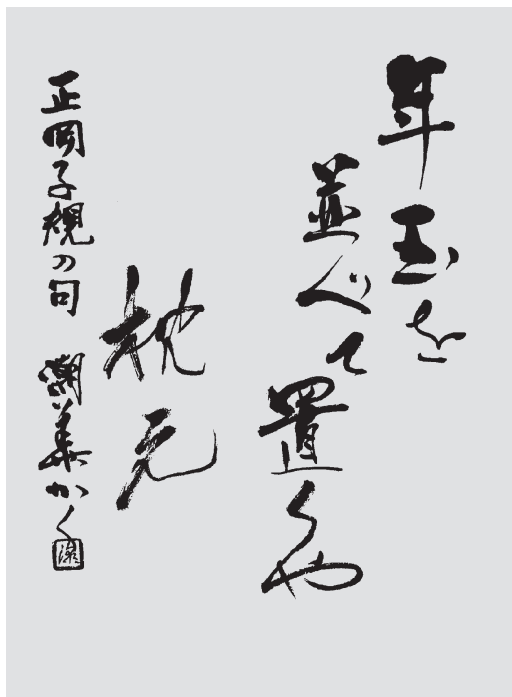 年玉を
並べて
置くや
枕元
正岡子規の句 潮美かく